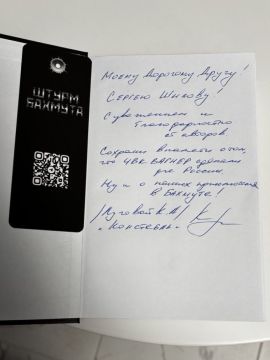 ШТУРМ
БАХМУТА
Моему Дорогому Другу!
Сергею Шилову!
С уважением и
благодарностью
от автора.
Сохрани в памяти о том,
что ЧВК ВАГНЕР сделали
для России.
Ну и о наших приключениях
в Бахмуте!
/Луговой К.А/
"Констебль"